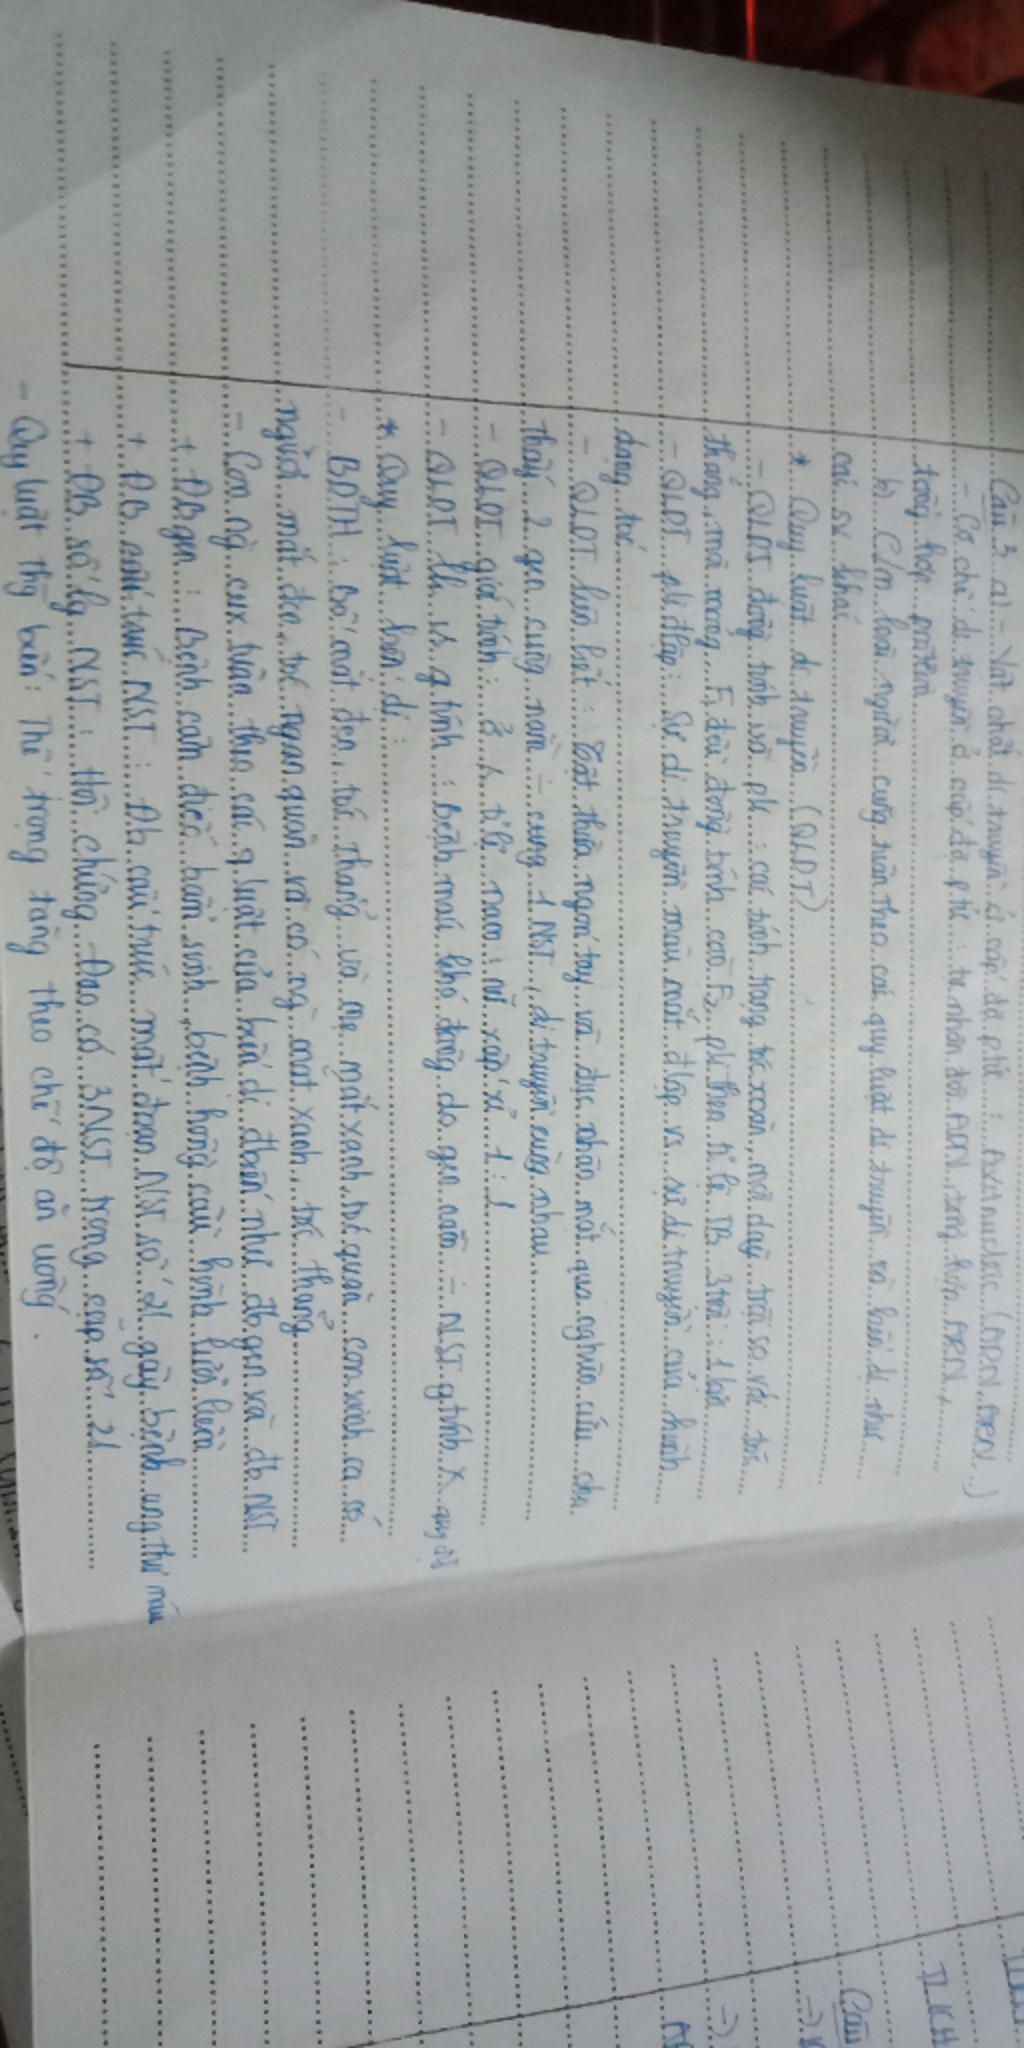 Câu 3. a) - Vật chất di truyền ở cấp độ ptử : axit nucleic (ADN, ARN..)
- Cơ chế di truyền ở cấp độ ptử : tự nhân đôi ADN, tổng hợp ARN,
tổng hợp prôtêin
b) C/m loài người cũng tuân theo các quy luật di truyền và biến dị như
các sv khác
* Quy luật di truyền (QLDT)
- QLDT đồng tính và pli : các tính trạng tóc xoăn, môi dày trội so với tóc
thẳng, môi mỏng. F1 đều đồng tính còn F2 pli theo tỉ lệ TB 3 trội : 1 lặn
- QLDT pli độc lập : Sự di truyền màu mắt độc lập vs sự di truyền của hình
dạng tóc
- QLDT liên kết : Tật thừa ngón tay và đục nhân mắt qua nghiên cứu cho
thấy 2 gen cùng nằm - cùng 1 NST, di truyền cùng nhau
- QLDT giới tính : ở tỉ lệ nam : nữ xấp xỉ 1 : 1
- QLDT lk vs g tính : Bệnh máu khó đông do gen nằm - NST g tính X quy định
* Quy luật biến dị :
- BDTH : Bố mắt đen, tóc thẳng và mẹ mắt xanh, tóc quăn con sinh ra có
người mắt đen, tóc quăn và có ng mắt xanh, tóc thẳng
- Con ng cux tuân theo các q luật của biến dị đbiến như đb gen và đb NST
+ ĐB gen : Bệnh câm điếc bẩm sinh, bệnh hồng cầu hình lưỡi liềm
+ ĐB cấu trúc NST : Đb cấu trúc mất đoạn NST số 21 gây bệnh ung thư máu
+ ĐB số lg NST : Hội chứng Đao có 3 NST trong cặp số 21
- Quy luật thg biến : Thể trọng tăng theo chế độ ăn uống.
Câu